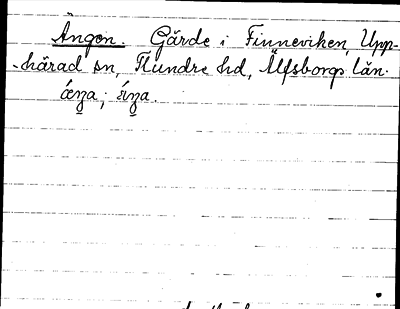 Ängen. Gärde i Finneviken, Upp-
-härad sn, Flundre hd, Älfsborgs län.